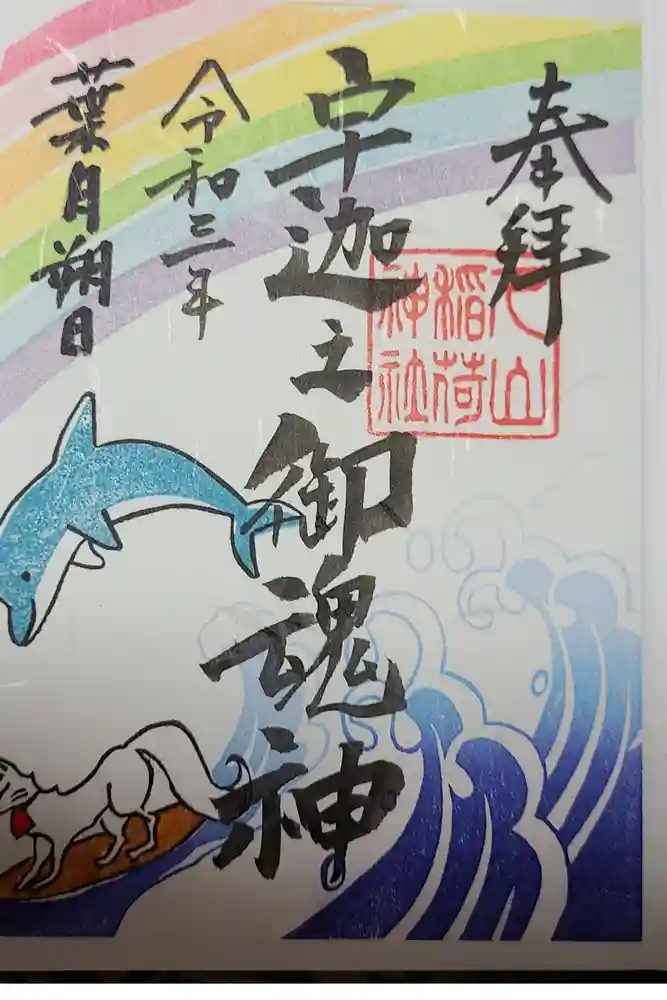 奉拝
山
稲荷
神社
宇迦之御魂神
令和三年
葉月朔日